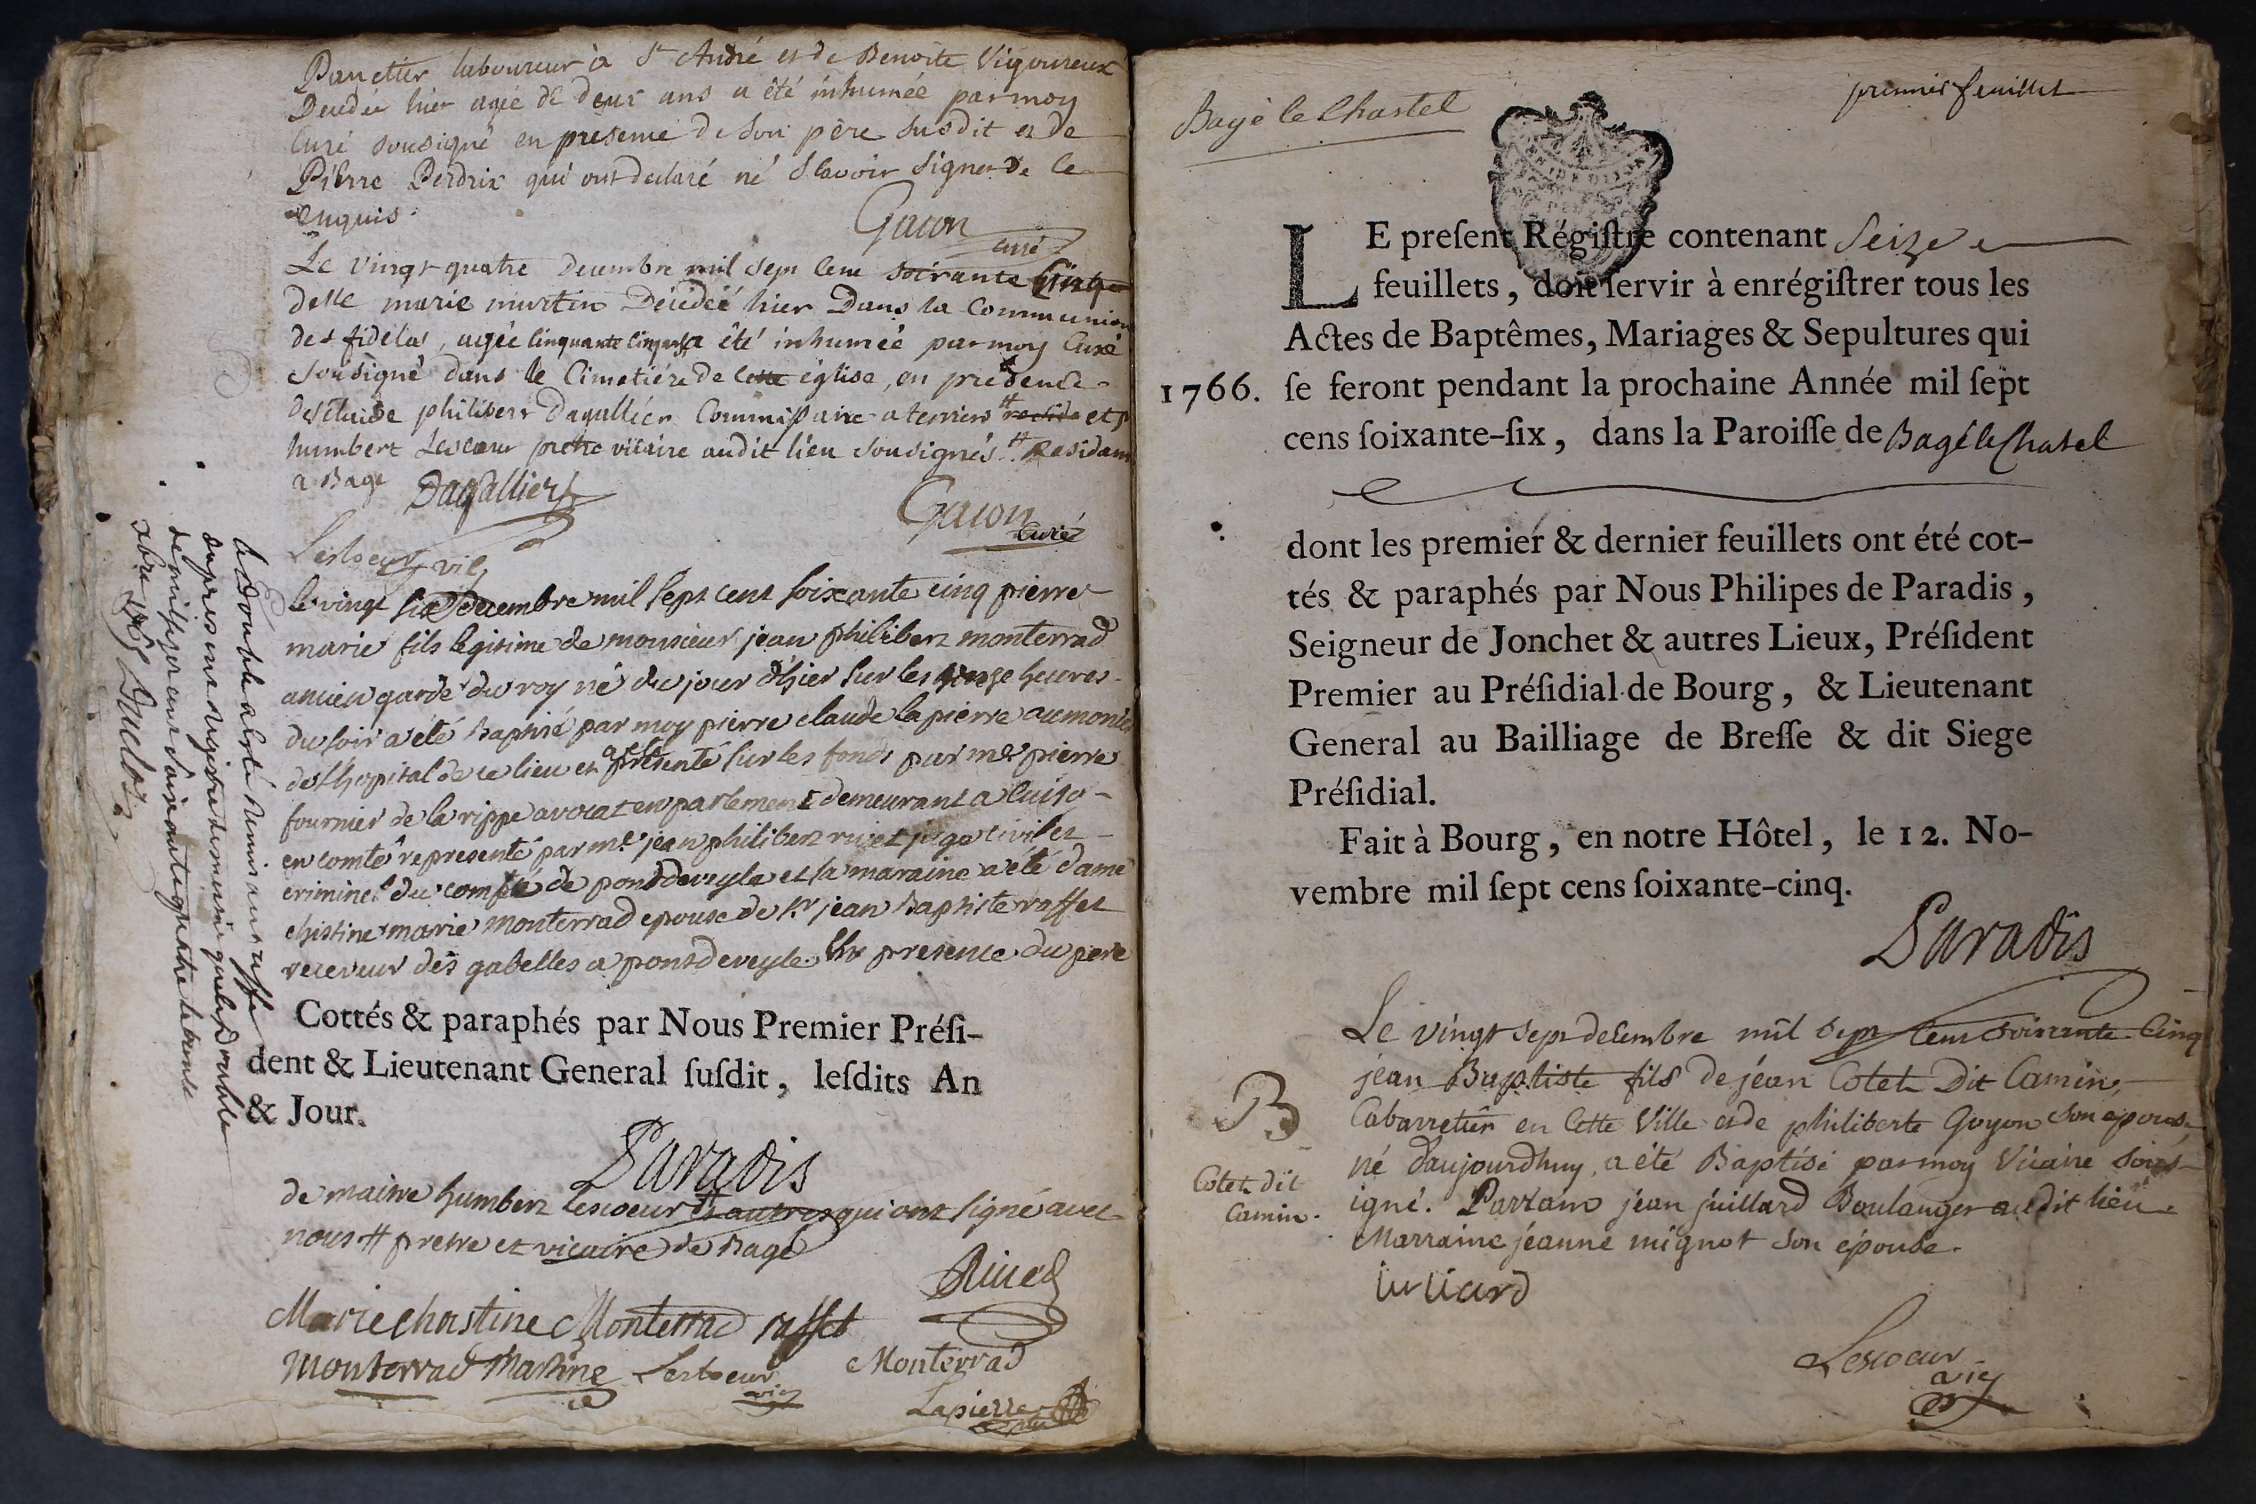 Panetier laboureur à St André et de Benoite Vigoureux
Decedée hier agée de deux ans a été inhumée par moy
Curé sousigné en presence de Son père susdit et de
Pierre Perdrix qui ont declaré né Scavoir Signer de ce
enquis
Gacon
curé
Le vingt quatre decembre mil sept cent soixante Cinq
delle marie martin Décédeé hier Dans la Communion
des fidéles, agée cinquante cinq a été inhumée par moy Curé
Sousigné dans le Cimetiére de Cette église, en presence
de philibert Dagallier Commissaire a terriers # et
humbert Lescœur pretre vicaire audit lieu sousignés. # Residant
a Bagé
Dagallier
Gacon
Curé
Lescoeur vic
le vingt six decembre mil sept cent soixante cinq pierre
marie fils legitime de monsieur jean philibert monterrad
ancien garde du roy né du jour d'hier sur les onze heures
du soir a été baptisé par moy pierre claude lapierre aumonier
de l'hopital de ce lieu et a été présenté sur les fonds par mre pierre
fournier de la rippe avocat en parlement demeurant a Cuiso
en comté representé par mre jean philibert rivet juge civil et
criminel du comté de pontdeveyle et la maraine a été dame
chistine marie monterrad epouse de sr jean baptiste raffet
receveur des gabelles a pontdeveyle En presence du pere
Cottés & paraphés par Nous Premier Préſi-
dent & Lieutenant General ſuſdit, leſdits An
& Jour.
Paradis
de maitre humbert lescoeur # et autres qui ont signé avec
nous # pretre et vicaire de Bagé
Rivet
Marie Chistine Monterrad raffet
Monterrad Martine Lescoeur vic Monterrad
Lapierre
le double a esté remis au greffe
Duclos
Bagé le Chastel
premier feuillet
LE preſent Régiſtre contenant Seize
feuillets, doit ſervir à enrégiſtrer tous les
Actes de Baptêmes, Mariages & Sepultures qui
1766. ſe feront pendant la prochaine Année mil ſept
cens ſoixante-ſix, dans la Paroiſſe de Bagé le Chatel
dont les premier & dernier feuillets ont été cot-
tés & paraphés par Nous Philipes de Paradis,
Seigneur de Jonchet & autres Lieux, Préſident
Premier au Préſidial de Bourg, & Lieutenant
General au Bailliage de Breſſe & dit Siege
Préſidial.
Fait à Bourg, en notre Hôtel, le 12. No-
vembre mil ſept cens ſoixante-cinq.
Paradis
Le vingt sept decembre mil sept Cent soixante Cinq
jean Baptiste fils de jéan Cotet Dit Camin,
B
Cabarretier en Cette Ville et de philiberte Goyon son épouse
né d'aujourdhuy, a été Baptisé par moy Vicaire sous-
Cotet dit
Camin.
igné. Parrain jean juillard Boulanger audit lieu
Marraine jéanne mignot Son épouse.
iulliard
Lescoeur
vic